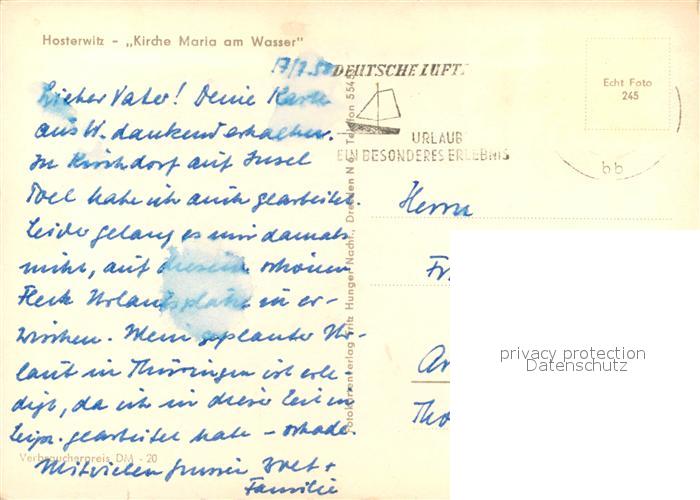 Hosterwitz - „Kirche Maria am Wasser"
17/7.58
Lieber Vater! Deine Karte
aus W. dankend erhalten.
In Kirchdorf auf Insel
Poel habe ich auch gearbeitet.
Leider gelang es mir damals
nicht, auf diesem schönen
Fleck Urlaubsplätze zu er-
wischen. Mein geplanter Ur-
laub in Thüringen ist erle-
digt, da ich in dieser Zeit in
Leipz. gearbeitet habe - schade.
Mit vielen Grüssen +
Familie
Verbraucherpreis DM -20
Fotokartenverlag Fritz Hunger Nachf., Dresden N 6, Telefon
DEUTSCHE LUFT
URLAUB
EIN BESONDERES ERLEBNIS
Echt Foto
245
bb
Herrn
Fr
privacy protection
Datenschutz